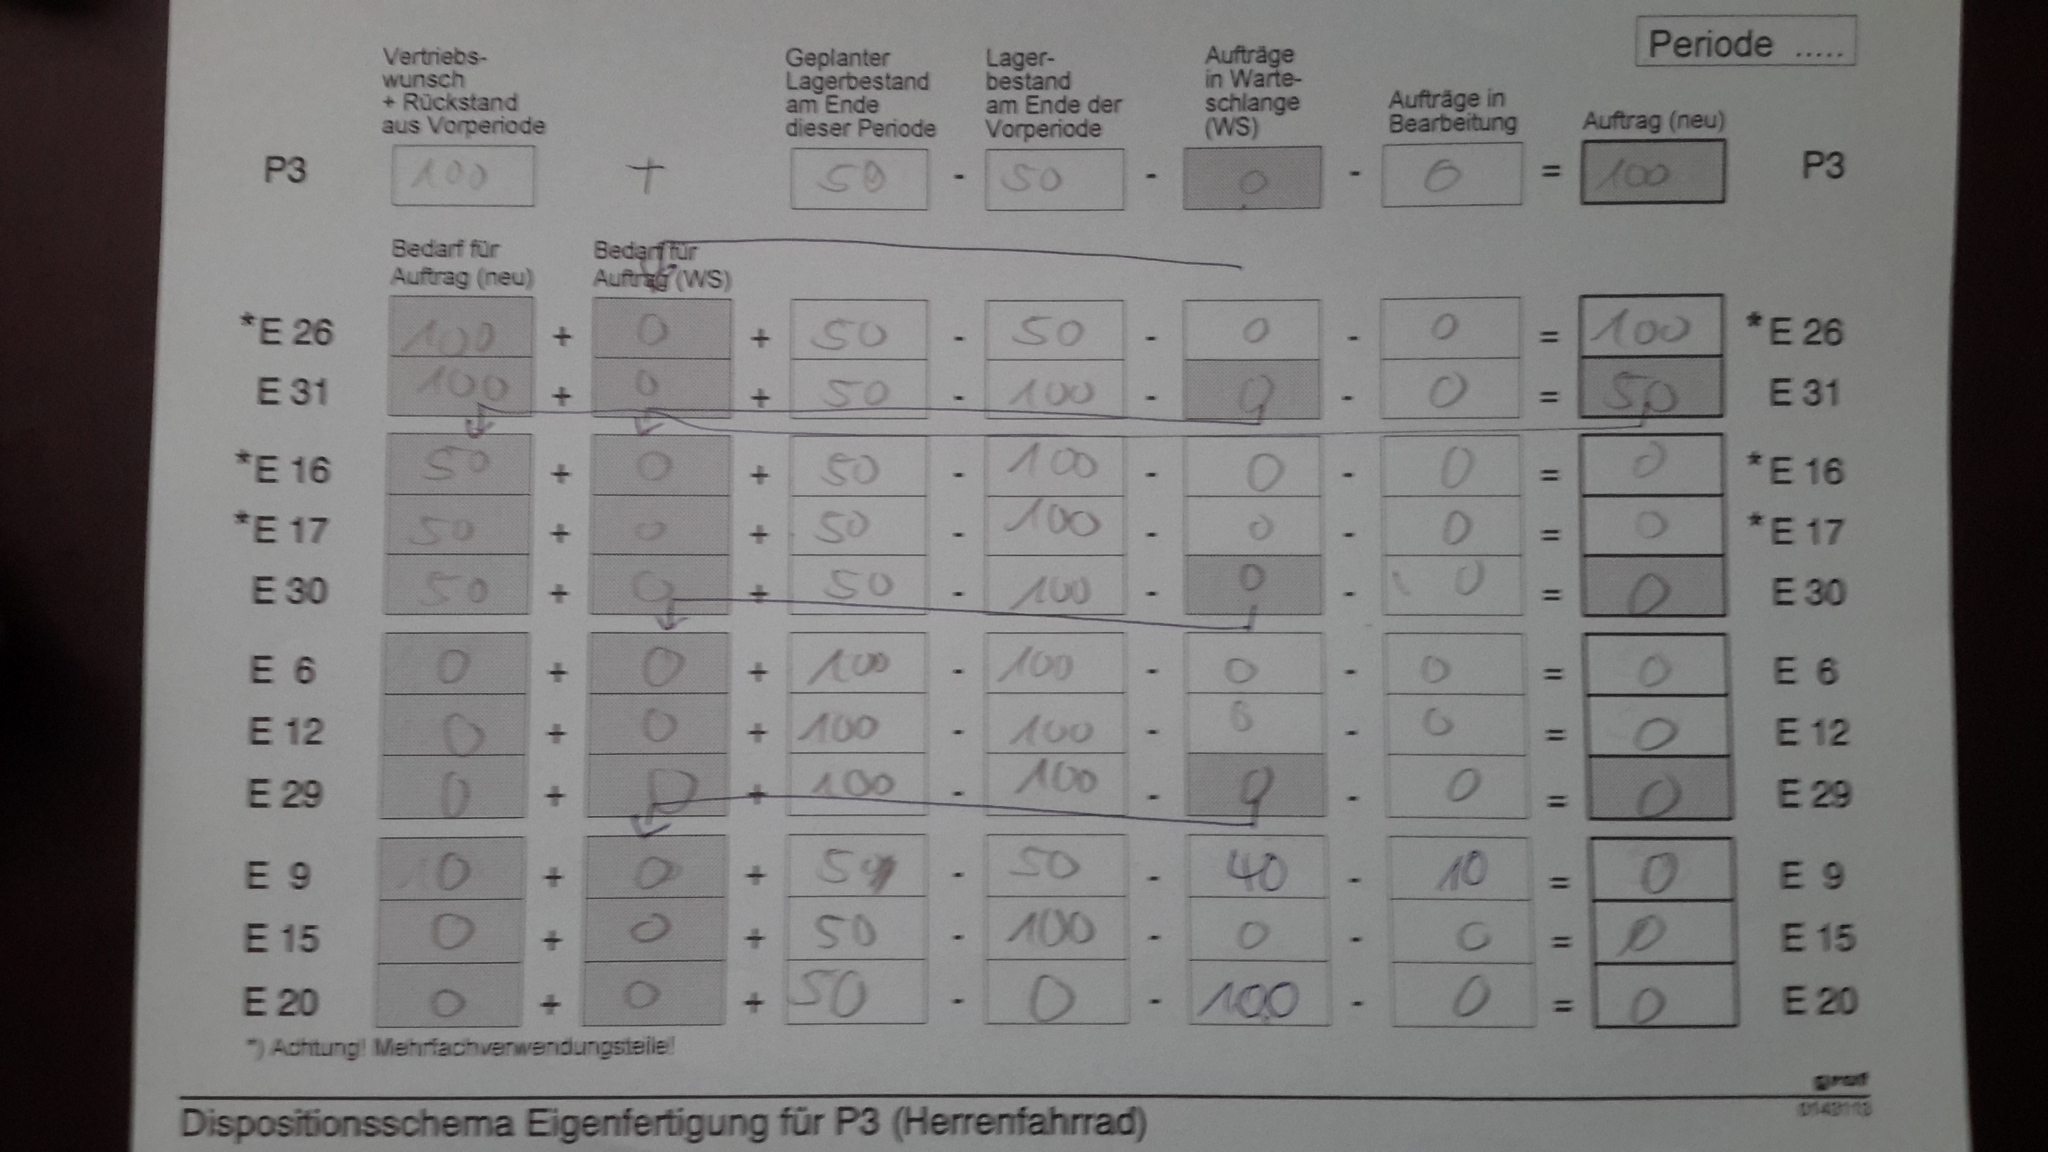 Periode .....
Vertriebs-
wunsch
+ Rückstand
aus Vorperiode
Geplanter
Lagerbestand
am Ende
dieser Periode
Lager-
bestand
am Ende der
Vorperiode
Aufträge
in Warte-
schlange
(WS)
Aufträge in
Bearbeitung
Auftrag (neu)
P3 100 + 50 - 50 - 0 - 0 = 100 P3
Bedarf für
Auftrag (neu)
Bedarf für
Auftrag (WS)
*E 26 100 + 0 + 50 - 50 - 0 - 0 = 100 *E 26
E 31 100 + 0 + 50 - 100 - 0 - 0 = 50 E 31
*E 16 50 + 0 + 50 - 100 - 0 - 0 = 0 *E 16
*E 17 50 + 0 + 50 - 100 - 0 - 0 = 0 *E 17
E 30 50 + 0 + 50 - 100 - 0 - 0 = 0 E 30
E 6 0 + 0 + 100 - 100 - 0 - 0 = 0 E 6
E 12 0 + 0 + 100 - 100 - 0 - 0 = 0 E 12
E 29 0 + 0 + 100 - 100 - 0 - 0 = 0 E 29
E 9 0 + 0 + 50 - 50 - 40 - 10 = 0 E 9
E 15 0 + 0 + 50 - 100 - 0 - 0 = 0 E 15
E 20 0 + 0 + 50 - 0 - 100 - 0 = 0 E 20
*) Achtung! Mehrfachverwendungsteile!
Dispositionsschema Eigenfertigung für P3 (Herrenfahrrad)